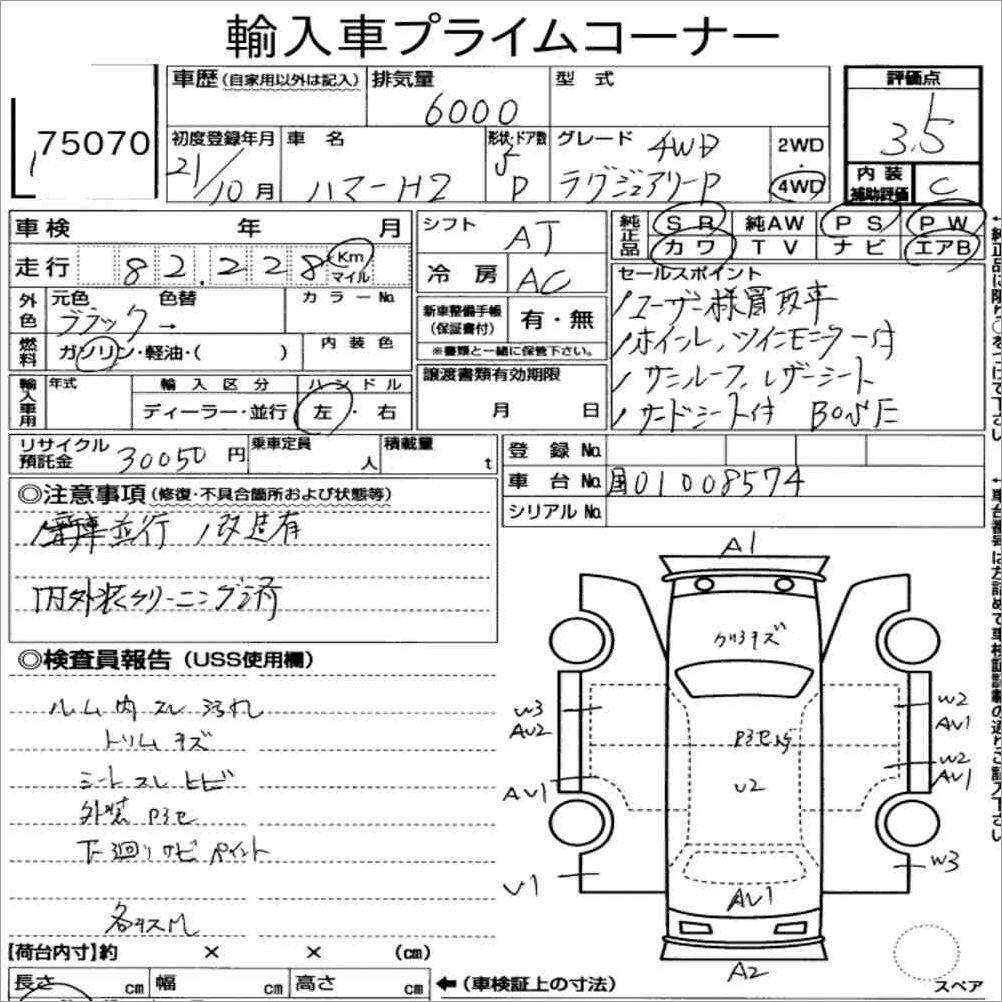 輸入車プライムコーナー
75070
車歴(自家用以外は記入) 排気量 型式 評価点
6000 3.5
初度登録年月 車名 形状・ドア数 グレード 4WD 2WD・4WD
21/10月 ハマーH2 5 D ラグジュアリーP
内装補助評価 C
車検 年 月 シフト AT 純正品 SR 純AW PS PW
カワ TV ナビ エアB
走行 82.228 Km マイル 冷房 AC
セールスポイント
外色 元色 色替 カラーNo.
ブラック→
新車整備手帳(保証書付) 有・無
※書類と一緒に保管下さい。
ユーザー様買取車
ホイール、ツインモニター付
サンルーフ、レザーシート
サードシート付 BOSE
燃料 ガソリン・軽油・( ) 内装色
輸入車用 年式 輸入区分 ハンドル
ディーラー・並行 左・右
譲渡書類有効期限
月 日
リサイクル預託金 30050円 乗車定員 人 積載量 t
登録No.
車台No. 国01008574
シリアルNo.
◎注意事項(修復・不具合箇所および状態等)
並行 改造有
内外装クリーニング済
◎検査員報告(USS使用欄)
ルーム内スレ汚れ
トリムキズ
シートスレヒビ
外装
下廻りサビペイント
各キスM
【荷台内寸】約 × × (cm)
長さ cm 幅 cm 高さ cm
←(車検証上の寸法)
A1
W3
AU2
W2
AU1
U2
W2
AU1
AU1
U1
W3
AU1
A2
スペア